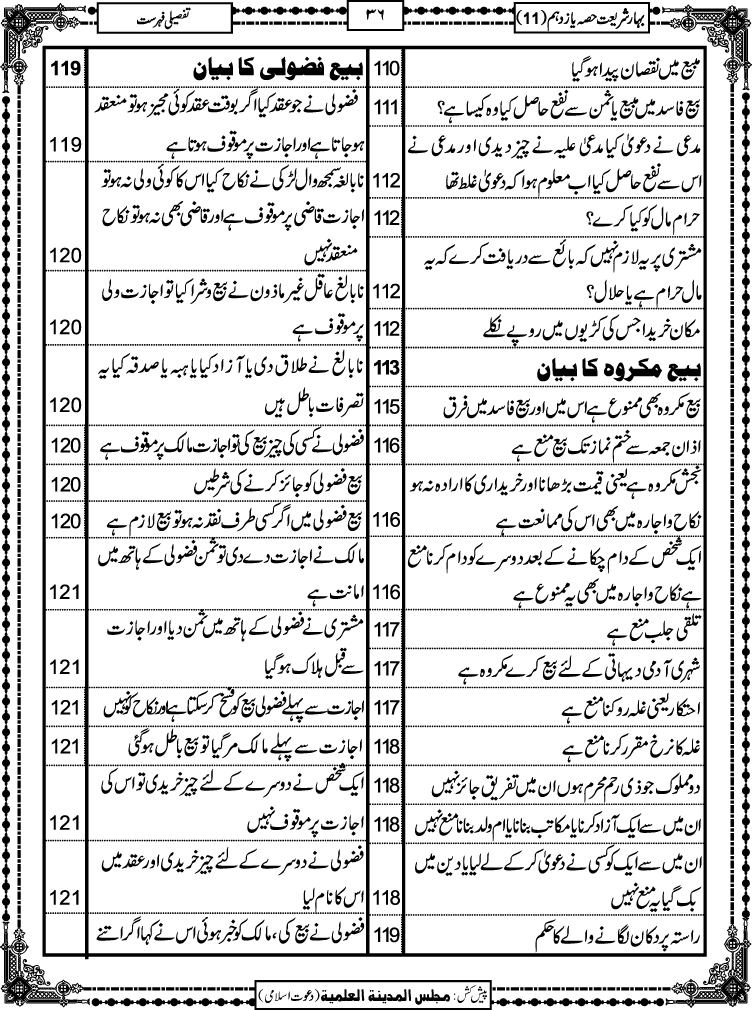 بہارِ شریعت حصہ یازدہم (11)
۳۶
تفصیلی فہرست
مبیع میں نقصان پیدا ہوگیا 110
بیع فاسد میں مبیع یا ثمن سے نفع حاصل کیا وہ کیسا ہے؟ 111
مدعی نے دعویٰ کیا مدعیٰ علیہ نے چیز دیدی اور مدعی نے
اس سے نفع حاصل کیا اب معلوم ہوا کہ دعویٰ غلط تھا 112
حرام مال کو کیا کرے؟ 112
مشتری پر یہ لازم نہیں کہ بائع سے دریافت کرے کہ یہ
مال حرام ہے یا حلال؟ 112
مکان خریدا جس کی کڑیوں میں روپے نکلے 112
بیع مکروہ کا بیان 113
بیع مکروہ بھی ممنوع ہے اس میں اور بیع فاسد میں فرق 115
اذان جمعہ سے ختم نماز تک بیع منع ہے 116
نجش مکروہ ہے یعنی قیمت بڑھانا اور خریداری کا ارادہ نہ ہو
نکاح و اجارہ میں بھی اس کی ممانعت ہے 116
ایک شخص کے دام چکانے کے بعد دوسرے کو دام کرنا منع
ہے نکاح و اجارہ میں بھی یہ ممنوع ہے 116
تلقی جلب منع ہے 117
شہری آدمی دیہاتی کے لئے بیع کرے مکروہ ہے 117
احتکار یعنی غلہ روکنا منع ہے 117
غلہ کا نرخ مقرر کرنا منع ہے 118
دو مملوک جو ذی رحم محرم ہوں ان میں تفریق جائز نہیں 118
ان میں سے ایک آزاد کرنا یا مکاتب بنانا یا ام ولد بنانا منع نہیں 118
ان میں سے ایک کو کسی نے دعویٰ کر کے لے لیا یا دین میں
بک گیا یہ منع نہیں 118
راستہ پر دکان لگانے والے کا حکم 119
بیع فضولی کا بیان 119
فضولی نے جو عقد کیا اگر بوقت عقد کوئی مجیز ہو تو منعقد
ہو جاتا ہے اور اجازت پر موقوف ہوتا ہے 119
نابالغہ سمجھ وال لڑکی نے نکاح کیا اس کا کوئی ولی نہ ہو تو
اجازت قاضی پر موقوف ہے اور قاضی بھی نہ ہو تو نکاح
منعقد نہیں 120
نابالغ عاقل غیر ماذون نے بیع و شرا کیا تو اجازت ولی
پر موقوف ہے 120
نابالغ نے طلاق دی یا آزاد کیا یا ہبہ یا صدقہ کیا یہ
تصرفات باطل ہیں 120
فضولی نے کسی کی چیز بیع کی تو اجازت مالک پر موقوف ہے 120
بیع فضولی کو جائز کرنے کی شرطیں 120
بیع فضولی میں اگر کسی طرف نقد نہ ہو تو بیع لازم ہے 120
مالک نے اجازت دے دی تو ثمن فضولی کے ہاتھ میں
امانت ہے 121
مشتری نے فضولی کے ہاتھ میں ثمن دیا اور اجازت
سے قبل ہلاک ہوگیا 121
اجازت سے پہلے فضولی بیع کو فسخ کرسکتا ہے اور نکاح کو نہیں 121
اجازت سے پہلے مالک مر گیا تو بیع باطل ہوگئی 121
ایک شخص نے دوسرے کے لئے چیز خریدی تو اس کی
اجازت پر موقوف نہیں 121
فضولی نے دوسرے کے لئے چیز خریدی اور عقد میں
اس کا نام لیا 121
فضولی نے بیع کی، مالک کو خبر ہوئی اس نے کہا اگر اتنے
پیش کش: مجلس المدینة العلمیة (دعوت اسلامی)